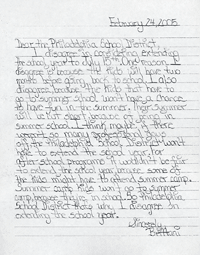 February 24, 2005
Dear the Philadelphia School District,
I disagree in considering extending
the school year to July 15th. One reason I
disagree is because the kids will have two
months before going back to school. I also
disagree because the kids that have to
go to summer school won't have a chance
to have fun in the summer. Their summer
will be cut short because of being in
summer school. I think maybe if there
weren't so many
of the Philadelphia School District won't
have to extend the school year. For
after school programs it wouldn't be fair
to extend the school year because some of
the kids might have to attend summer camp.
Summer camp kids won't go to summer
camp because they're in school. So Philadelphia
School District that's why I disagree on
extending the school year.
Sincerely